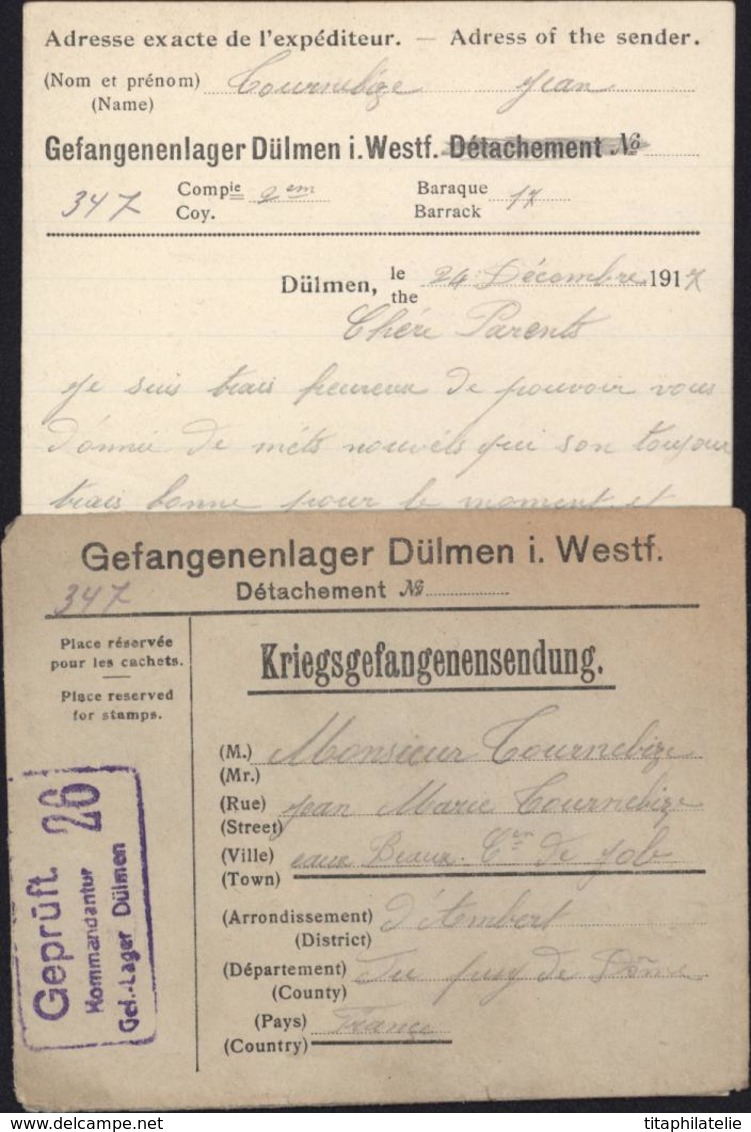 Adresse exacte de l'expéditeur. — Adress of the sender.
(Nom et prénom) Tournebize Jean
(Name)
Gefangenenlager Dülmen i. Westf. Détachement №
347 Compie 2em Baraque 17
Coy. Barrack
Dülmen, le 24 Décembre 1917
the
Chère Parents
Je suis trais heureux de pouvoir vous
donnée de méts nouvéls qui son toujour
trais bonne pour le moment et
Gefangenenlager Dülmen i. Westf.
347 Détachement №
Place réservée
pour les cachets.
Place reserved
for stamps.
Kriegsgefangenensendung.
(M.) Monsieur Tournebize
(Mr.)
(Rue) Jean Marie Tournebize
(Street)
(Ville) eaux Beaux. Cen de Job
(Town)
(Arrondissement) d'Ambert
(District)
(Département) Du puy de Dôme
(County)
(Pays) France
(Country)
Geprüft. 26
Kommandantur
Gef.-Lager Dülmen
titaphilatelie